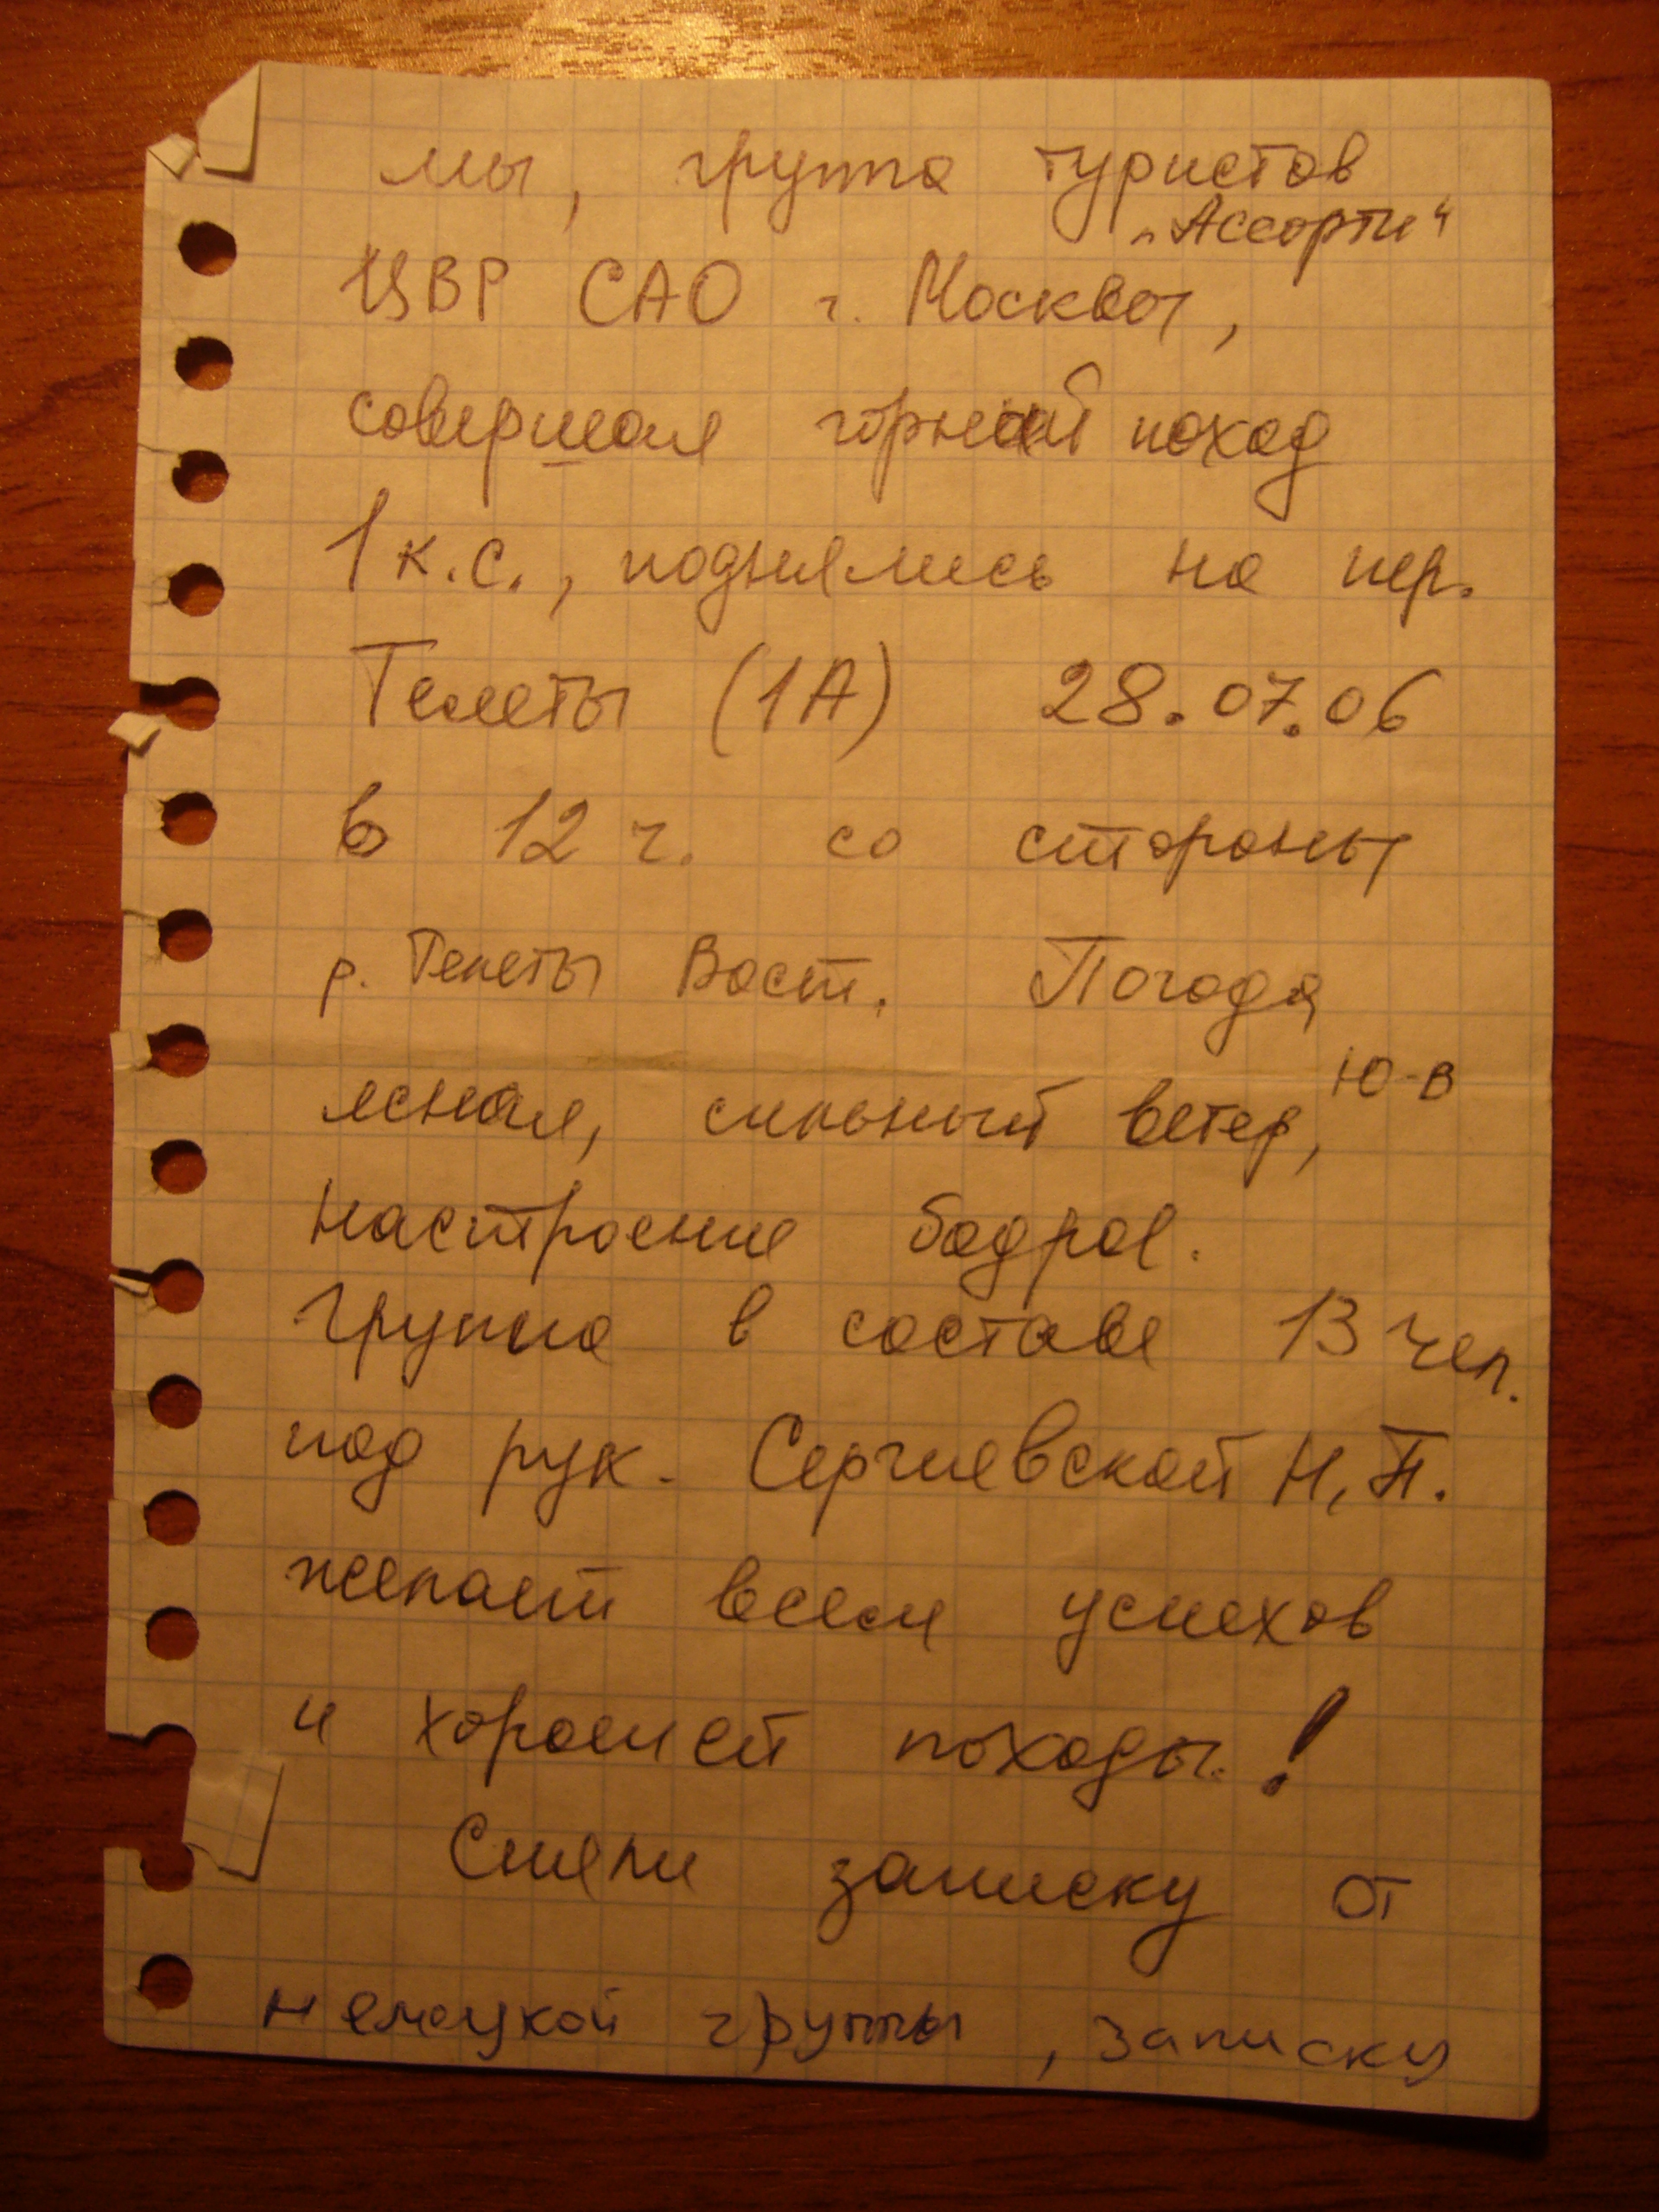 мы, группа туристов
„Ассорти“
ЦВР САО г. Москвы,
совершая горный поход
1 к.с., поднялись на пер.
Телеты (1А) 28.07.06
в 12 ч. со стороны
р. Телеты Вост. Погода
ясная, сильный ветер, Ю-В
настроение бодрое.
Группа в составе 13 чел.
под рук. Сергиевской Н.П.
желает всем успехов
и хорошей походы!
Сняли записку от
немецкой группы, записку